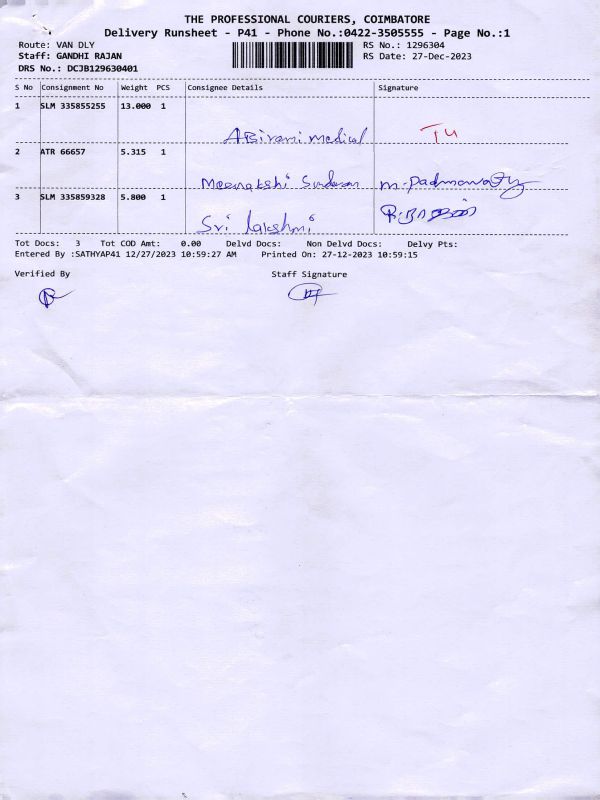 THE PROFESSIONAL COURIERS, COIMBATORE
Delivery Runsheet - P41 - Phone No.:0422-3505555 - Page No.:1
Route: VAN DLY RS No.: 1296304
Staff: GANDHI RAJAN RS Date: 27-Dec-2023
DRS No.: DCJB129630401
S No Consignment No Weight PCS Consignee Details Signature
1 SLM 335855255 13.000 1
ABirami medical TU
2 ATR 66657 5.315 1
Meenakshi Sundaram M. Padmavathy
3 SLM 335859328 5.800 1
Sri lakshmi
Tot Docs: 3 Tot COD Amt: 0.00 Delvd Docs: Non Delvd Docs: Delvy Pts:
Entered By :SATHYAP41 12/27/2023 10:59:27 AM Printed On: 27-12-2023 10:59:15
Verified By Staff Signature